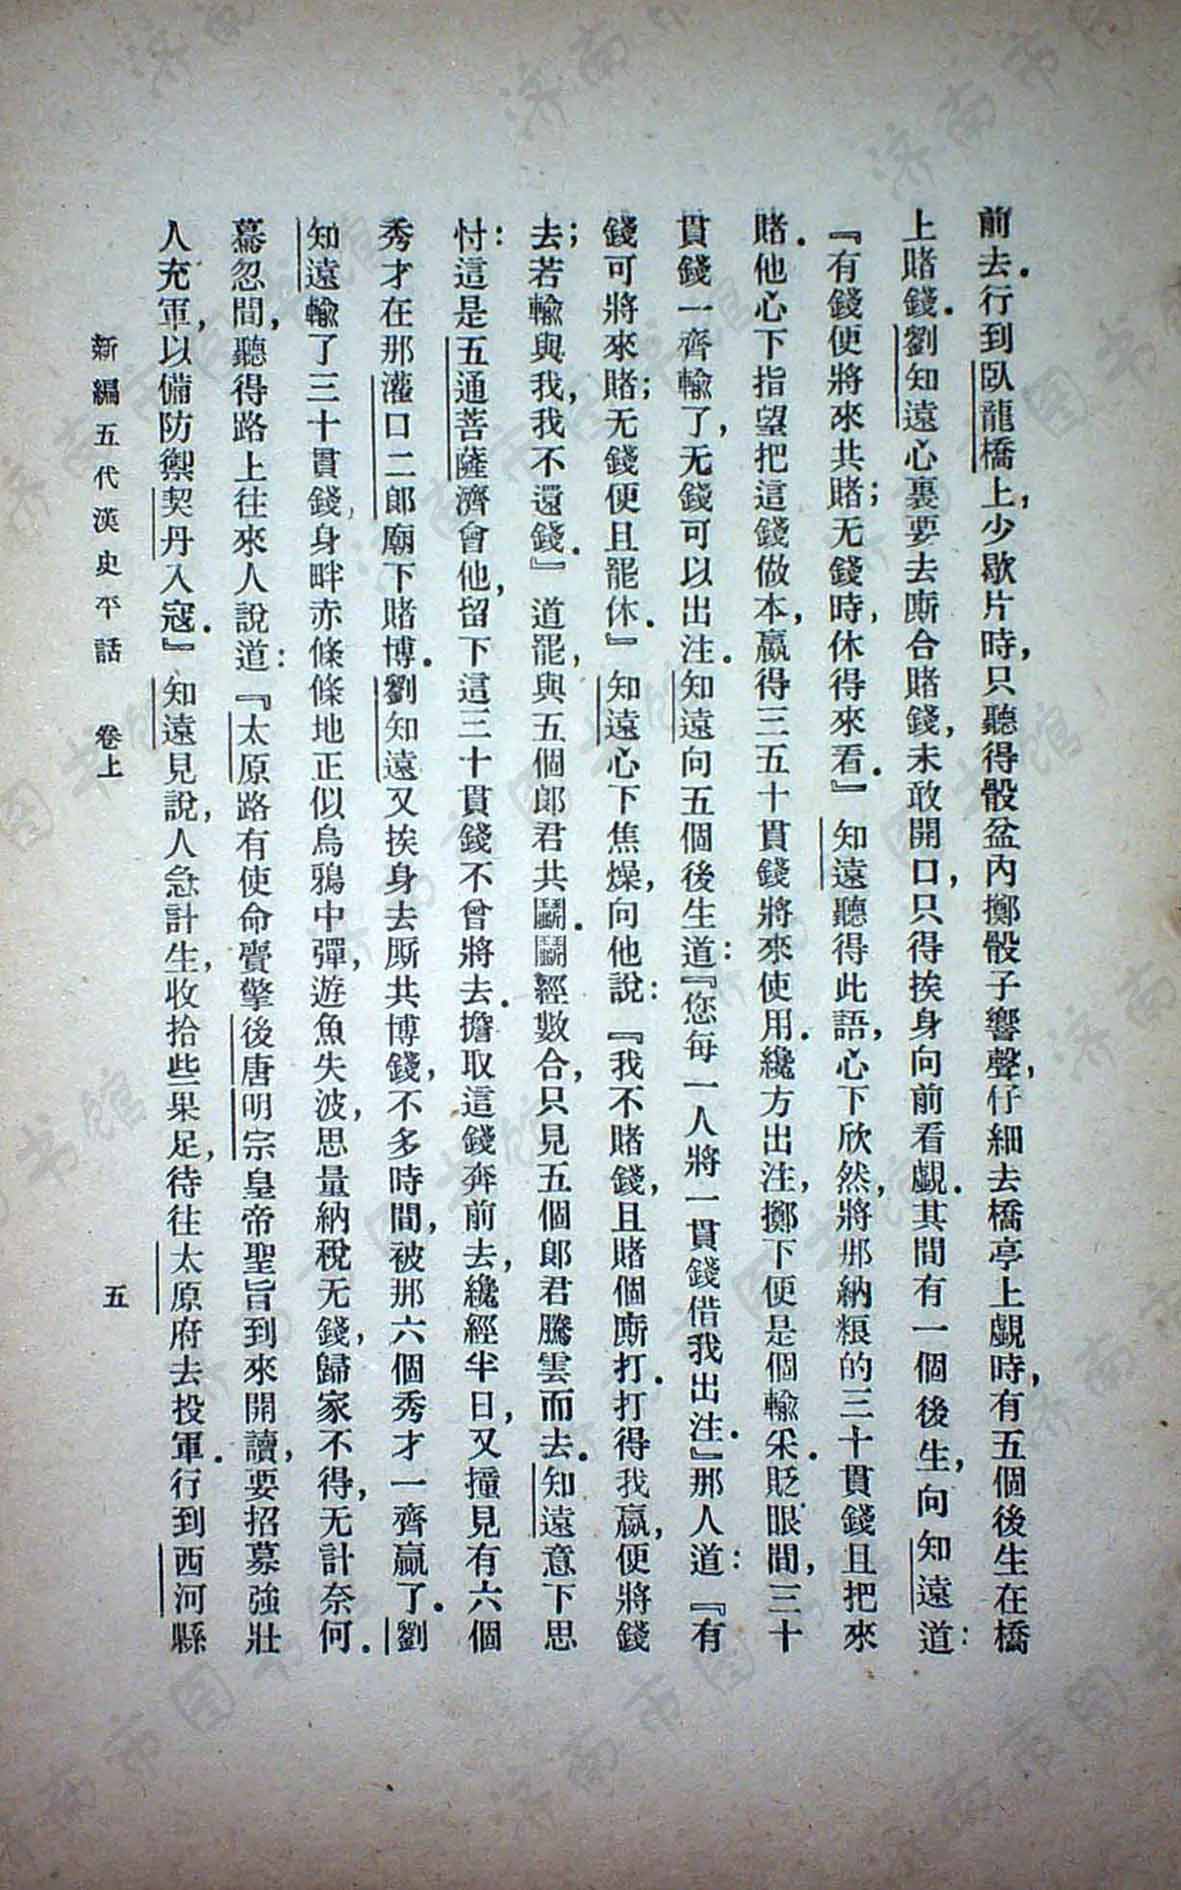 前去．行到臥龍橋上，少歇片時，只聽得骰盆內擲骰子響聲，仔細去橋亭上覷時，有五個後生在橋
上賭錢．劉知遠心裏要去廝合賭錢，未敢開口，只得挨身向前看覷．其間有一個後生，向知遠道：
『有錢便將來共賭；无錢時，休得來看．』知遠聽得此語，心下欣然，將那納粮的三十貫錢且把來
賭．他心下指望把這錢做本，贏得三五十貫錢將來使用．纔方出注，擲下便是個輸采．貶眼間，三十
貫錢一齊輸了，无錢可以出注．知遠向五個後生道：『您每一人將一貫錢借我出注．』那人道：『有
錢可將來賭；无錢便且罷休．』知遠心下焦燥，向他說：『我不賭錢，且賭個廝打．打得我贏，便將錢
去；若輸與我，我不還錢．』道罷，與五個郎君共鬭．鬭經數合，只見五個郎君騰雲而去．知遠意下思
忖：這是五通菩薩濟會他，留下這三十貫錢不曾將去．擔取這錢奔前去，纔經半日，又撞見有六個
秀才在那灌口二郎廟下賭博．劉知遠又挨身去厮共博錢，不多時間，被那六個秀才一齊贏了．劉
知遠輸了三十貫錢，身畔赤條條地正似烏鴉中彈，遊魚失波，思量納稅无錢，歸家不得，无計奈何．
驀忽間，聽得路上往來人說道：『太原路有使命賫擎後唐明宗皇帝聖旨到來開讀，要招募強壯
人充軍，以備防禦契丹入寇．』知遠見說，人急計生，收拾些果足，待往太原府去投軍．行到西河縣
新編五代漢史平話　卷上　五
济南市图书馆